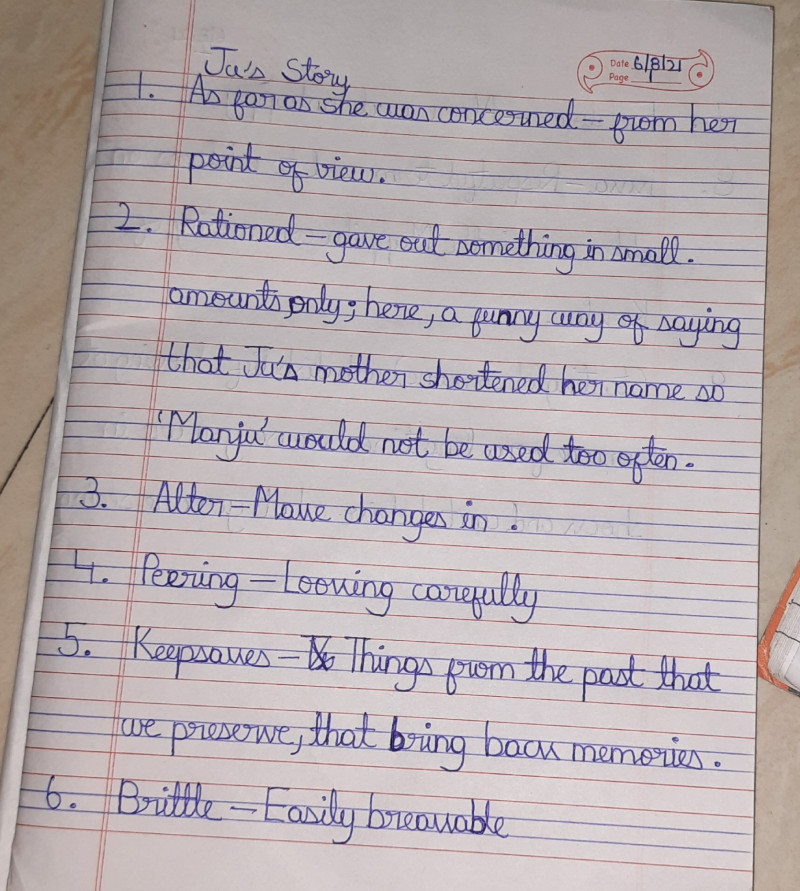 Date 6/8/21
Page
Ju's Story
1. As far as she was concerned – from her
point of view.
2. Rationed – gave out something in small.
amounts only; here, a funny way of saying
that Ju's mother shortened her name so
'Manju' would not be used too often.
3. Alter – Make changes in.
4. Peering – Looking carefully
5. Keepsakes – Things from the past that
we preserve, that bring back memories.
6. Brittle – Easily breakable